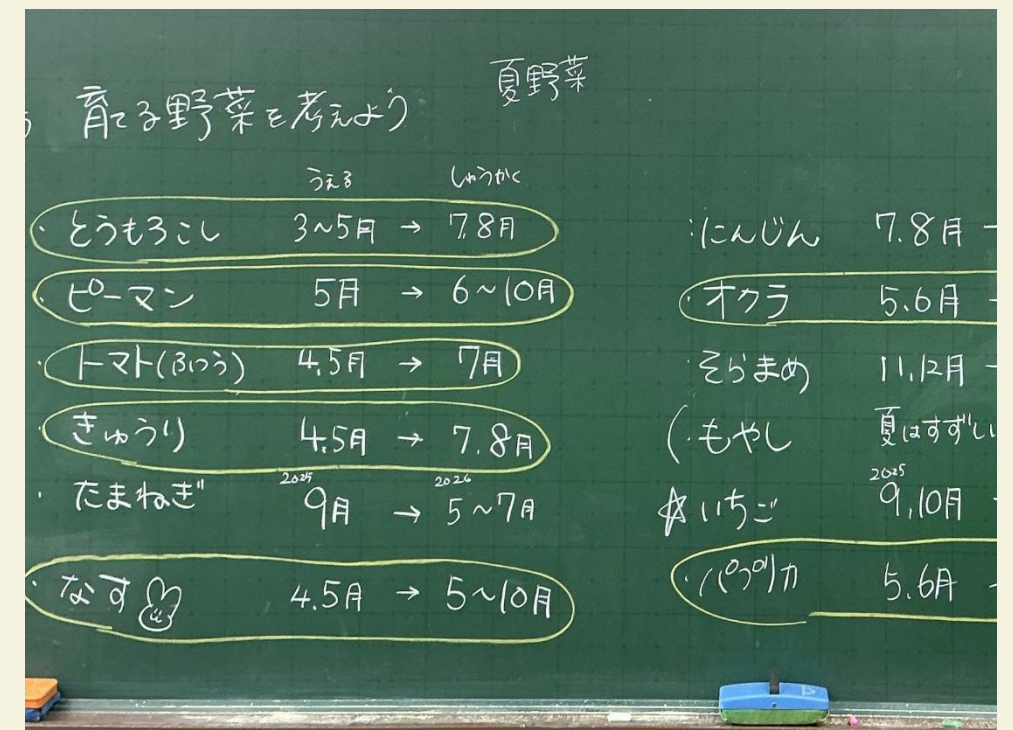 夏野菜
育てる野菜を考えよう
うえる しゅうかく
・とうもろこし 3~5月 → 7.8月
・ピーマン 5月 → 6~10月
・トマト(ふつう) 4.5月 → 7月
・きゅうり 4.5月 → 7.8月
2025 2026
・たまねぎ 9月 → 5~7月
・なす 4.5月 → 5~10月
・にんじん 7.8月
・オクラ 5.6月
・そらまめ 11.12月
(・もやし 夏はすずしい
2025
☆いちご 9.10月
・パプリカ 5.6月